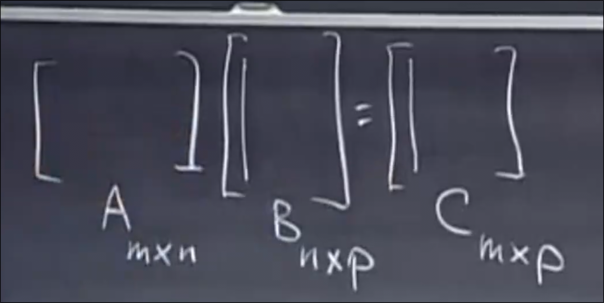 [ ] [| ] = [| ]
A m×n B n×p C m×p